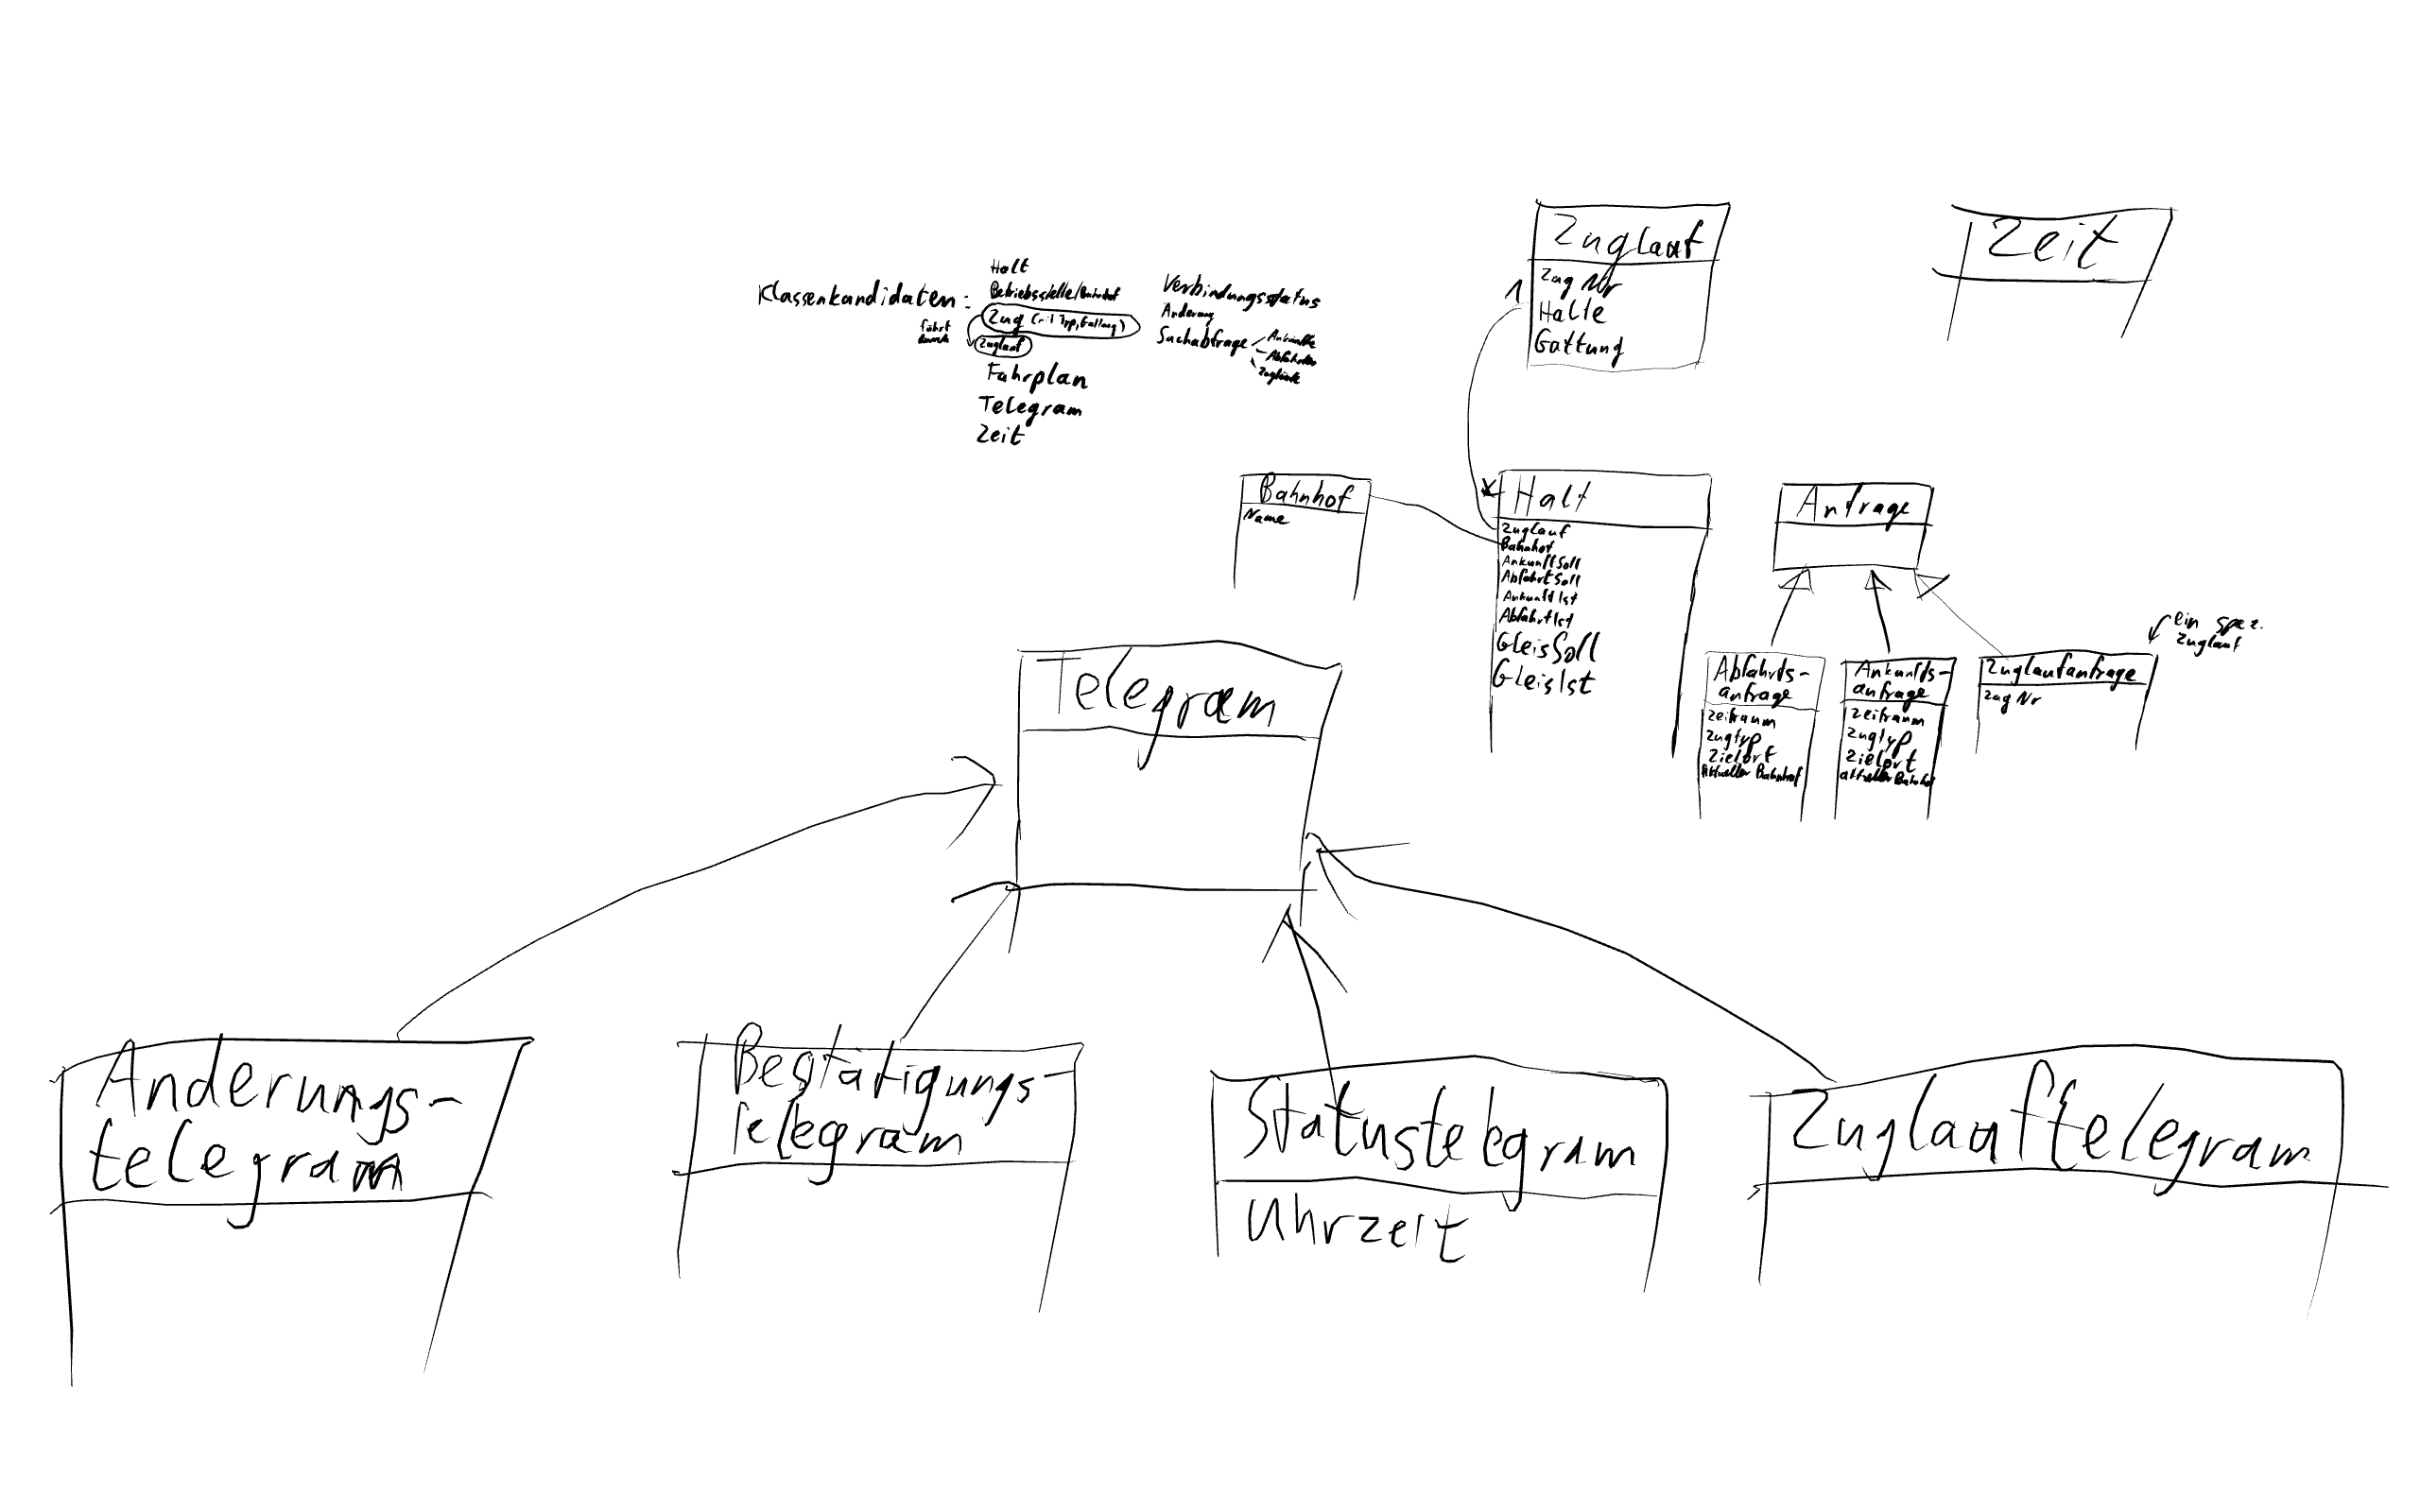 Klassenkandidaten:
Halt
Betriebsstelle/Bahnhof
Zug (mit Typ, Gattung)
fährt
durch
Zuglauf
Fahrplan
Telegram
Zeit
Verbindungsstatus
Änderung
Suchabfrage
Ankünfte
Abfahrten
Zugläufe
Zuglauf
Zug Nr
Halte
Gattung
1
Zeit
Bahnhof
Name
*
Halt
Zuglauf
Bahnhof
AnkunftSoll
AbfahrtSoll
AnkunftIst
AbfahrtIst
GleisSoll
GleisIst
Anfrage
Abfahrts-
anfrage
Zeitraum
Zugtyp
Zielort
aktueller Bahnhof
Ankunfts-
anfrage
Zeitraum
Zugtyp
Zielort
aktueller Bahnhof
ein spez.
Zuglauf
Zuglaufanfrage
Zug Nr
Telegram
Änderungs-
telegram
Bestätigungs-
Telegram
Statustelegram
Uhrzeit
Zuglauftelegram